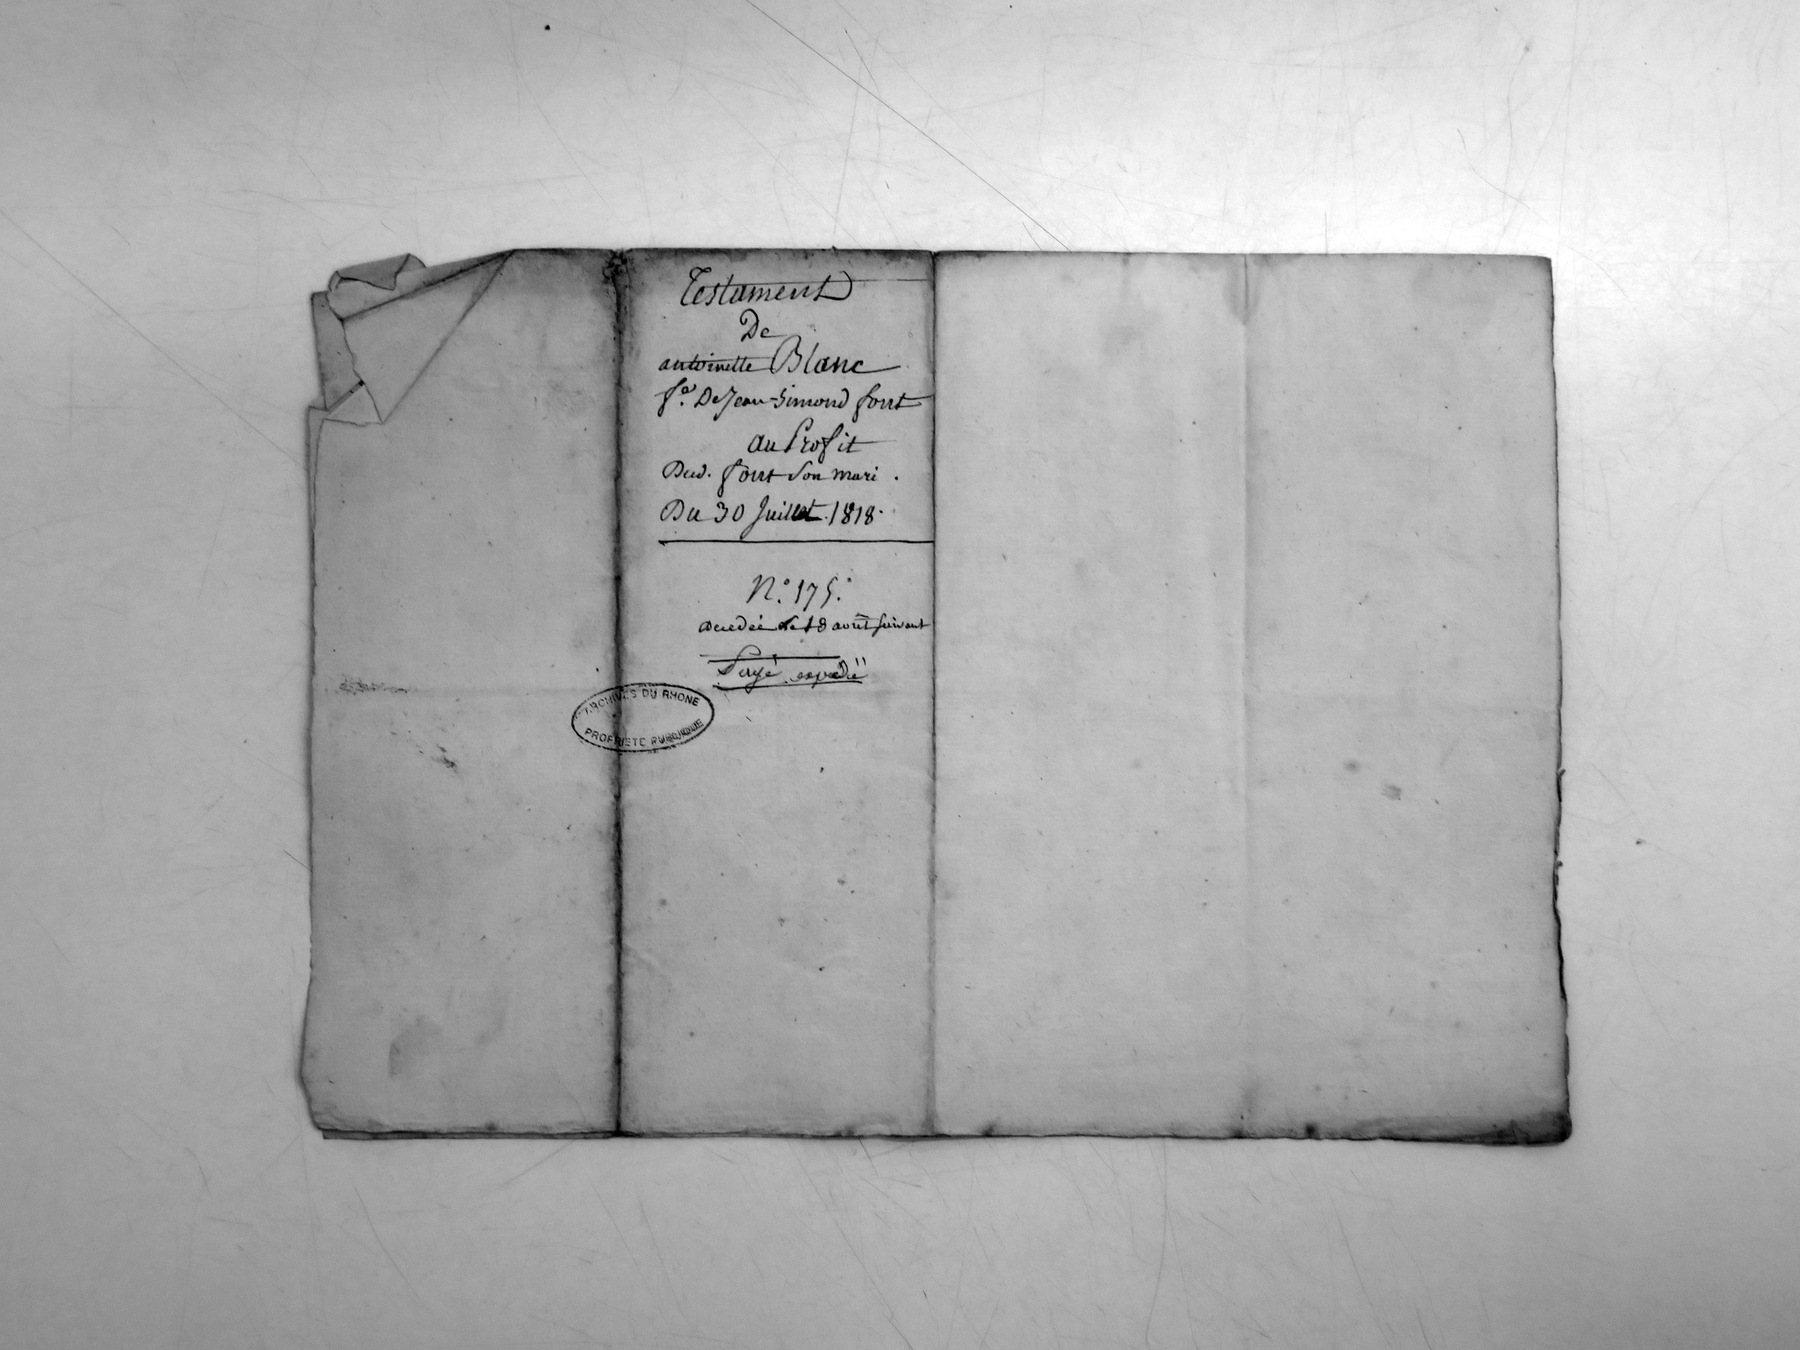 Testament
De
antoinette Blanc
fe. De Jean-Simond font
au Profit
Dud. font Son mari.
Du 30 Juillet 1818.
N.° 175.
decedée le 18 avril suivant
expedié
ARCHIVES DU RHONE
PROPRIETE PUBLIQUE